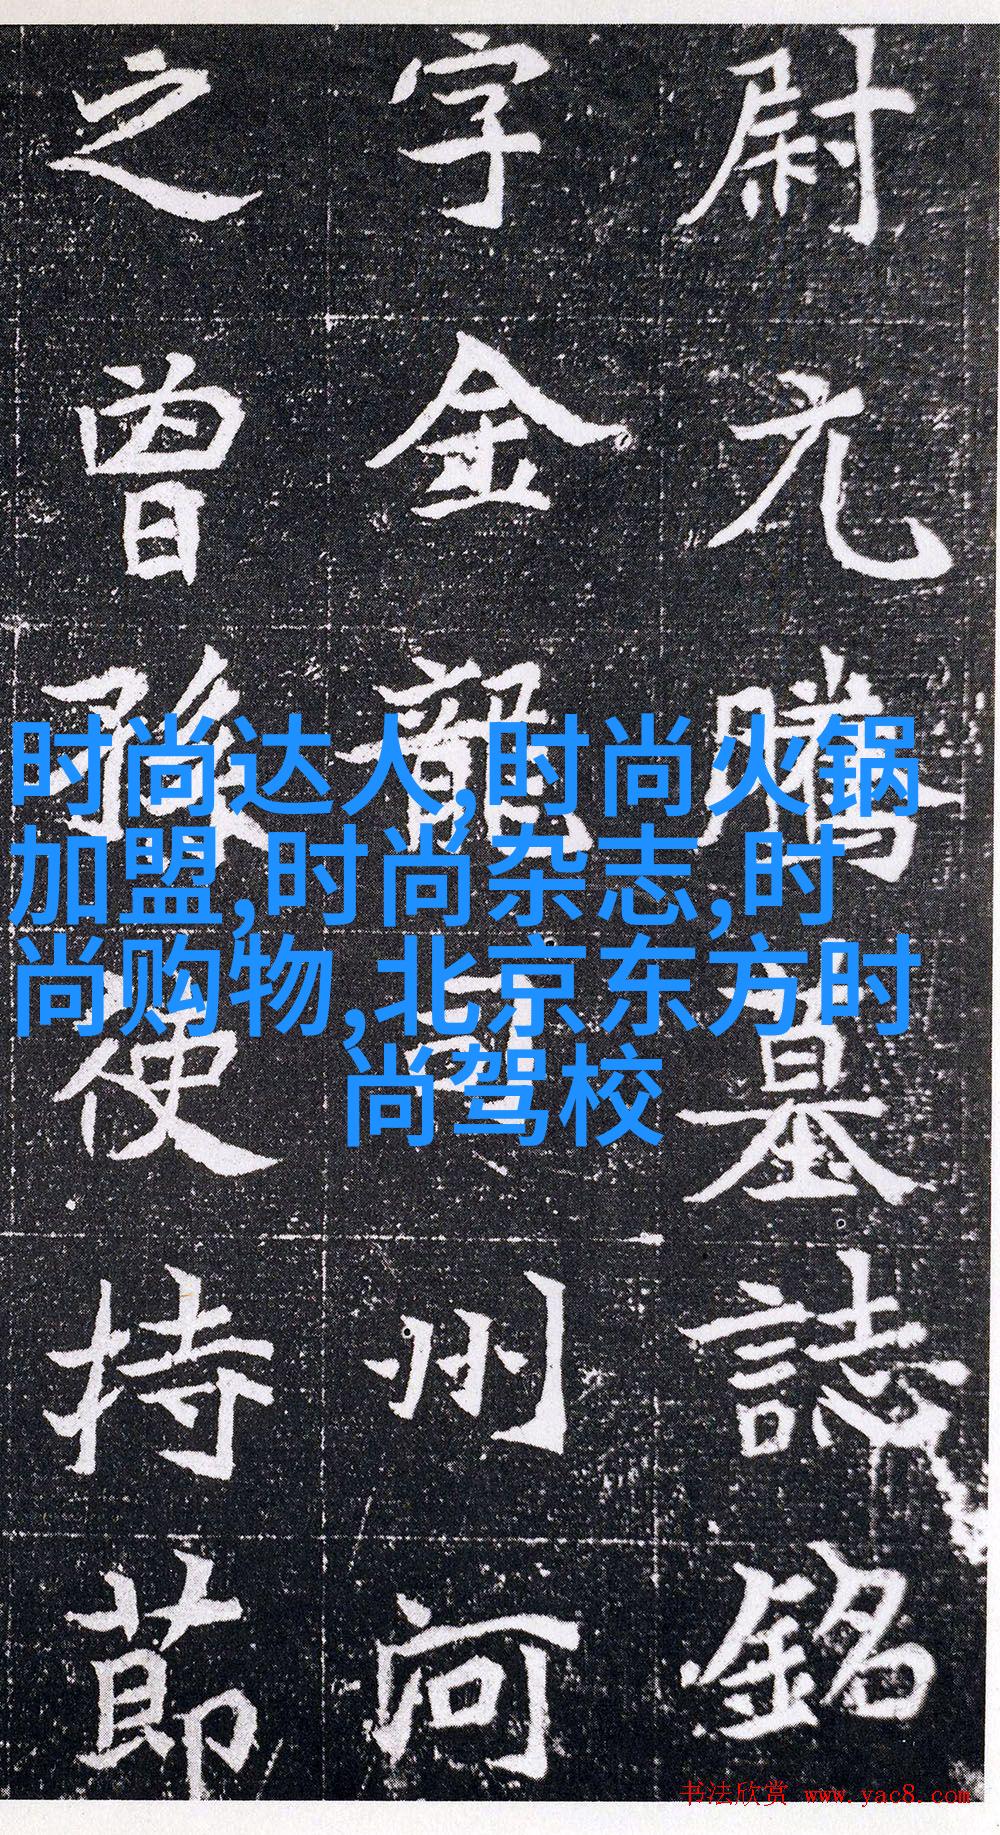 尉元騰墓誌銘
字金龍司州河
之曾孫使持節
时尚达人,时尚火锅
加盟,时尚杂志,时
尚购物,北京东方时
尚驾校
书法欣赏 www.yac8.com